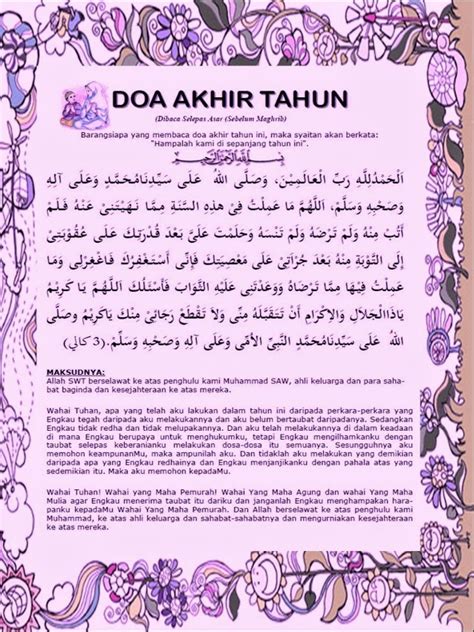 DOA AKHIR TAHUN
(Dibaca Selepas Asar (Sebelum Maghrib)
Barangsiapa yang membaca doa akhir tahun ini, maka syaitan akan berkata:
"Hampalah kami di sepanjang tahun ini".
بسم الله الرحمن الرحيم
اَلْحَمْدُلِلَّهِ رَبِّ الْعَالَمِيْنَ، وَصَلَّى اللهُ عَلَى سَيِّدِنَامُحَمَّدٍ وَعَلَى آلِهِ
وَصَحْبِهِ وَسَلَّمْ، اَللَّهُمَّ مَا عَمِلْتُ فِى هَذِهِ السَّنَةِ مِمَّا نَهَيْتَنِيْ عَنْهُ فَلَمْ
أَتُبْ مِنْهُ وَلَمْ تَرْضَهُ وَلَمْ تَنْسَهُ وَحَلِمْتَ عَلَىَّ بَعْدَ قُدْرَتِكَ عَلَى عُقُوْبَتِيْ
إِلَى التَّوْبَةِ مِنْهُ بَعْدَ جُرْأَتِيْ عَلَى مَعْصِيَتِكَ فَإِنِّى أَسْتَغْفِرُكَ فَاغْفِرْلِى وَمَا
عَمِلْتُ فِيْهَا مِمَّا تَرْضَاهُ وَوَعَدْتَنِى عَلَيْهِ الثَّوَابَ فَأَسْئَلُكَ اَللَّهُمَّ يَا كَرِيْمُ
يَاذَاالْجَلَالِ وَالْإِكْرَامِ أَنْ تَتَقَبَّلَهُ مِنِّى وَلَا تَقْطَعْ رَجَائِيْ مِنْكَ يَاكَرِيْمُ وَصَلَّى
اللهُ عَلَى سَيِّدِنَامُحَمَّدٍ النَّبِىِّ الْأُمِّى وَعَلَى آلِهِ وَصَحْبِهِ وَسَلَّمْ.(3 كالي)
MAKSUDNYA:
Allah SWT berselawat ke atas penghulu kami Muhammad SAW, ahli keluarga dan para saha-
bat baginda dan kesejahteraan ke atas mereka.
Wahai Tuhan, apa yang telah aku lakukan dalam tahun ini daripada perkara-perkara yang
Engkau tegah daripada aku melakukannya dan aku belum bertaubat daripadanya. Sedangkan
Engkau tidak redha dan tidak melupakannya. Dan aku telah melakukannya di dalam keadaan
di mana Engkau berupaya untuk menghukumku, tetapi Engkau mengilhamkanku dengan
taubat selepas keberanianku melakukan dosa-dosa itu semuanya. Sesungguhnya aku
memohon keampunanMu, maka ampunilah aku. Dan tidaklah aku melakukan yang demikian
daripada apa yang Engkau redhainya dan Engkau menjanjikanku dengan pahala atas yang
sedemikian itu. Maka aku memohon kepadaMu.
Wahai Tuhan! Wahai yang Maha Pemurah! Wahai Yang Maha Agung dan wahai Yang Maha
Mulia agar Engkau menerima taubat itu dariku dan janganlah Engkau menghampakan hara-
panku kepadaMu Wahai Yang Maha Pemurah. Dan Allah berselawat ke atas penghulu kami
Muhammad, ke atas ahli keluarga dan sahabat-sahabatnya dan mengurniakan kesejahteraan
ke atas mereka.